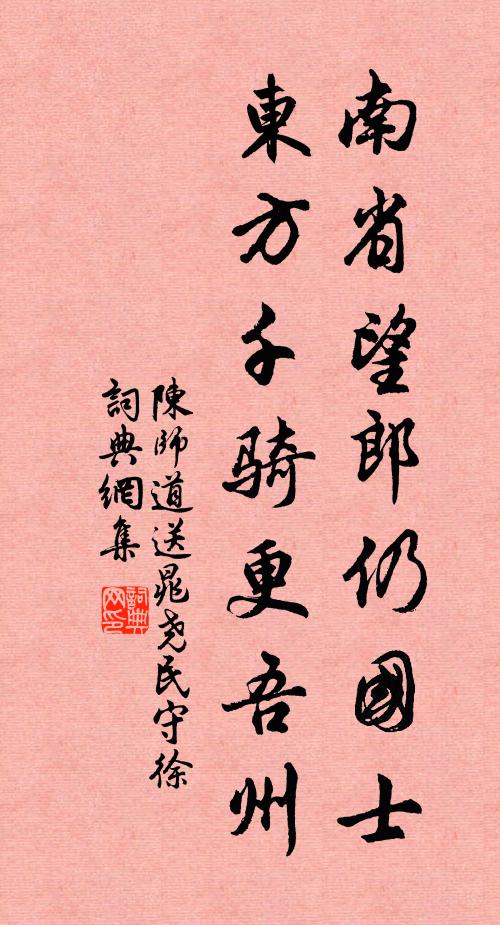 南省望郎仍國士
東方千骑更吾州
陳師道送晁尧民守徐
詞典網集
詞典网印